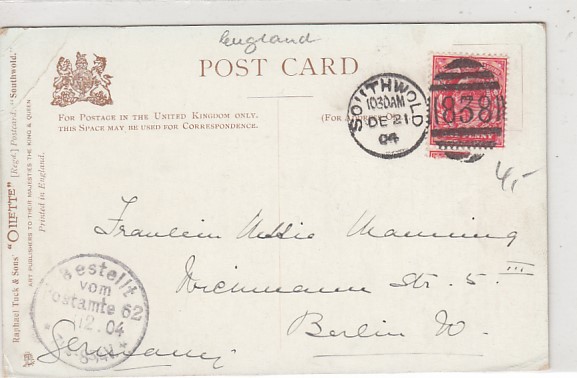 England
POST CARD
FOR POSTAGE IN THE UNITED KINGDOM ONLY.
THIS SPACE MAY BE USED FOR CORRESPONDENCE.
(FOR
SOUTHWOLD
10.30AM
DE 21
04
838
4,-
Raphael Tuck & Sons' "OILETTE" [Regd.] Postcard. "Southwold."
ART PUBLISHERS TO THEIR MAJESTIES THE KING & QUEEN
Printed in England.
Fraulein Manning
Str. 5 III
Berlin W.
Germany
Bestellt
vom
Postamte 62
12.04